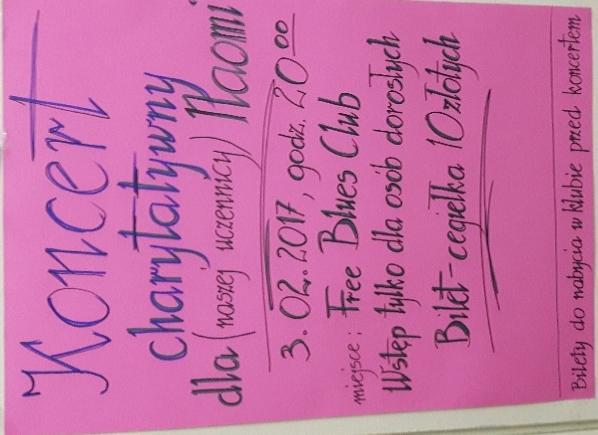 Koncert
charytatywny
dla (naszej uczennicy) Naomi
3.02.2017, godz. 20⁰⁰
miejsce: Free Blues Club
Wstęp tylko dla osób dorosłych
Bilet-cegiełka 10złotych
Bilety do nabycia w klubie przed koncertem